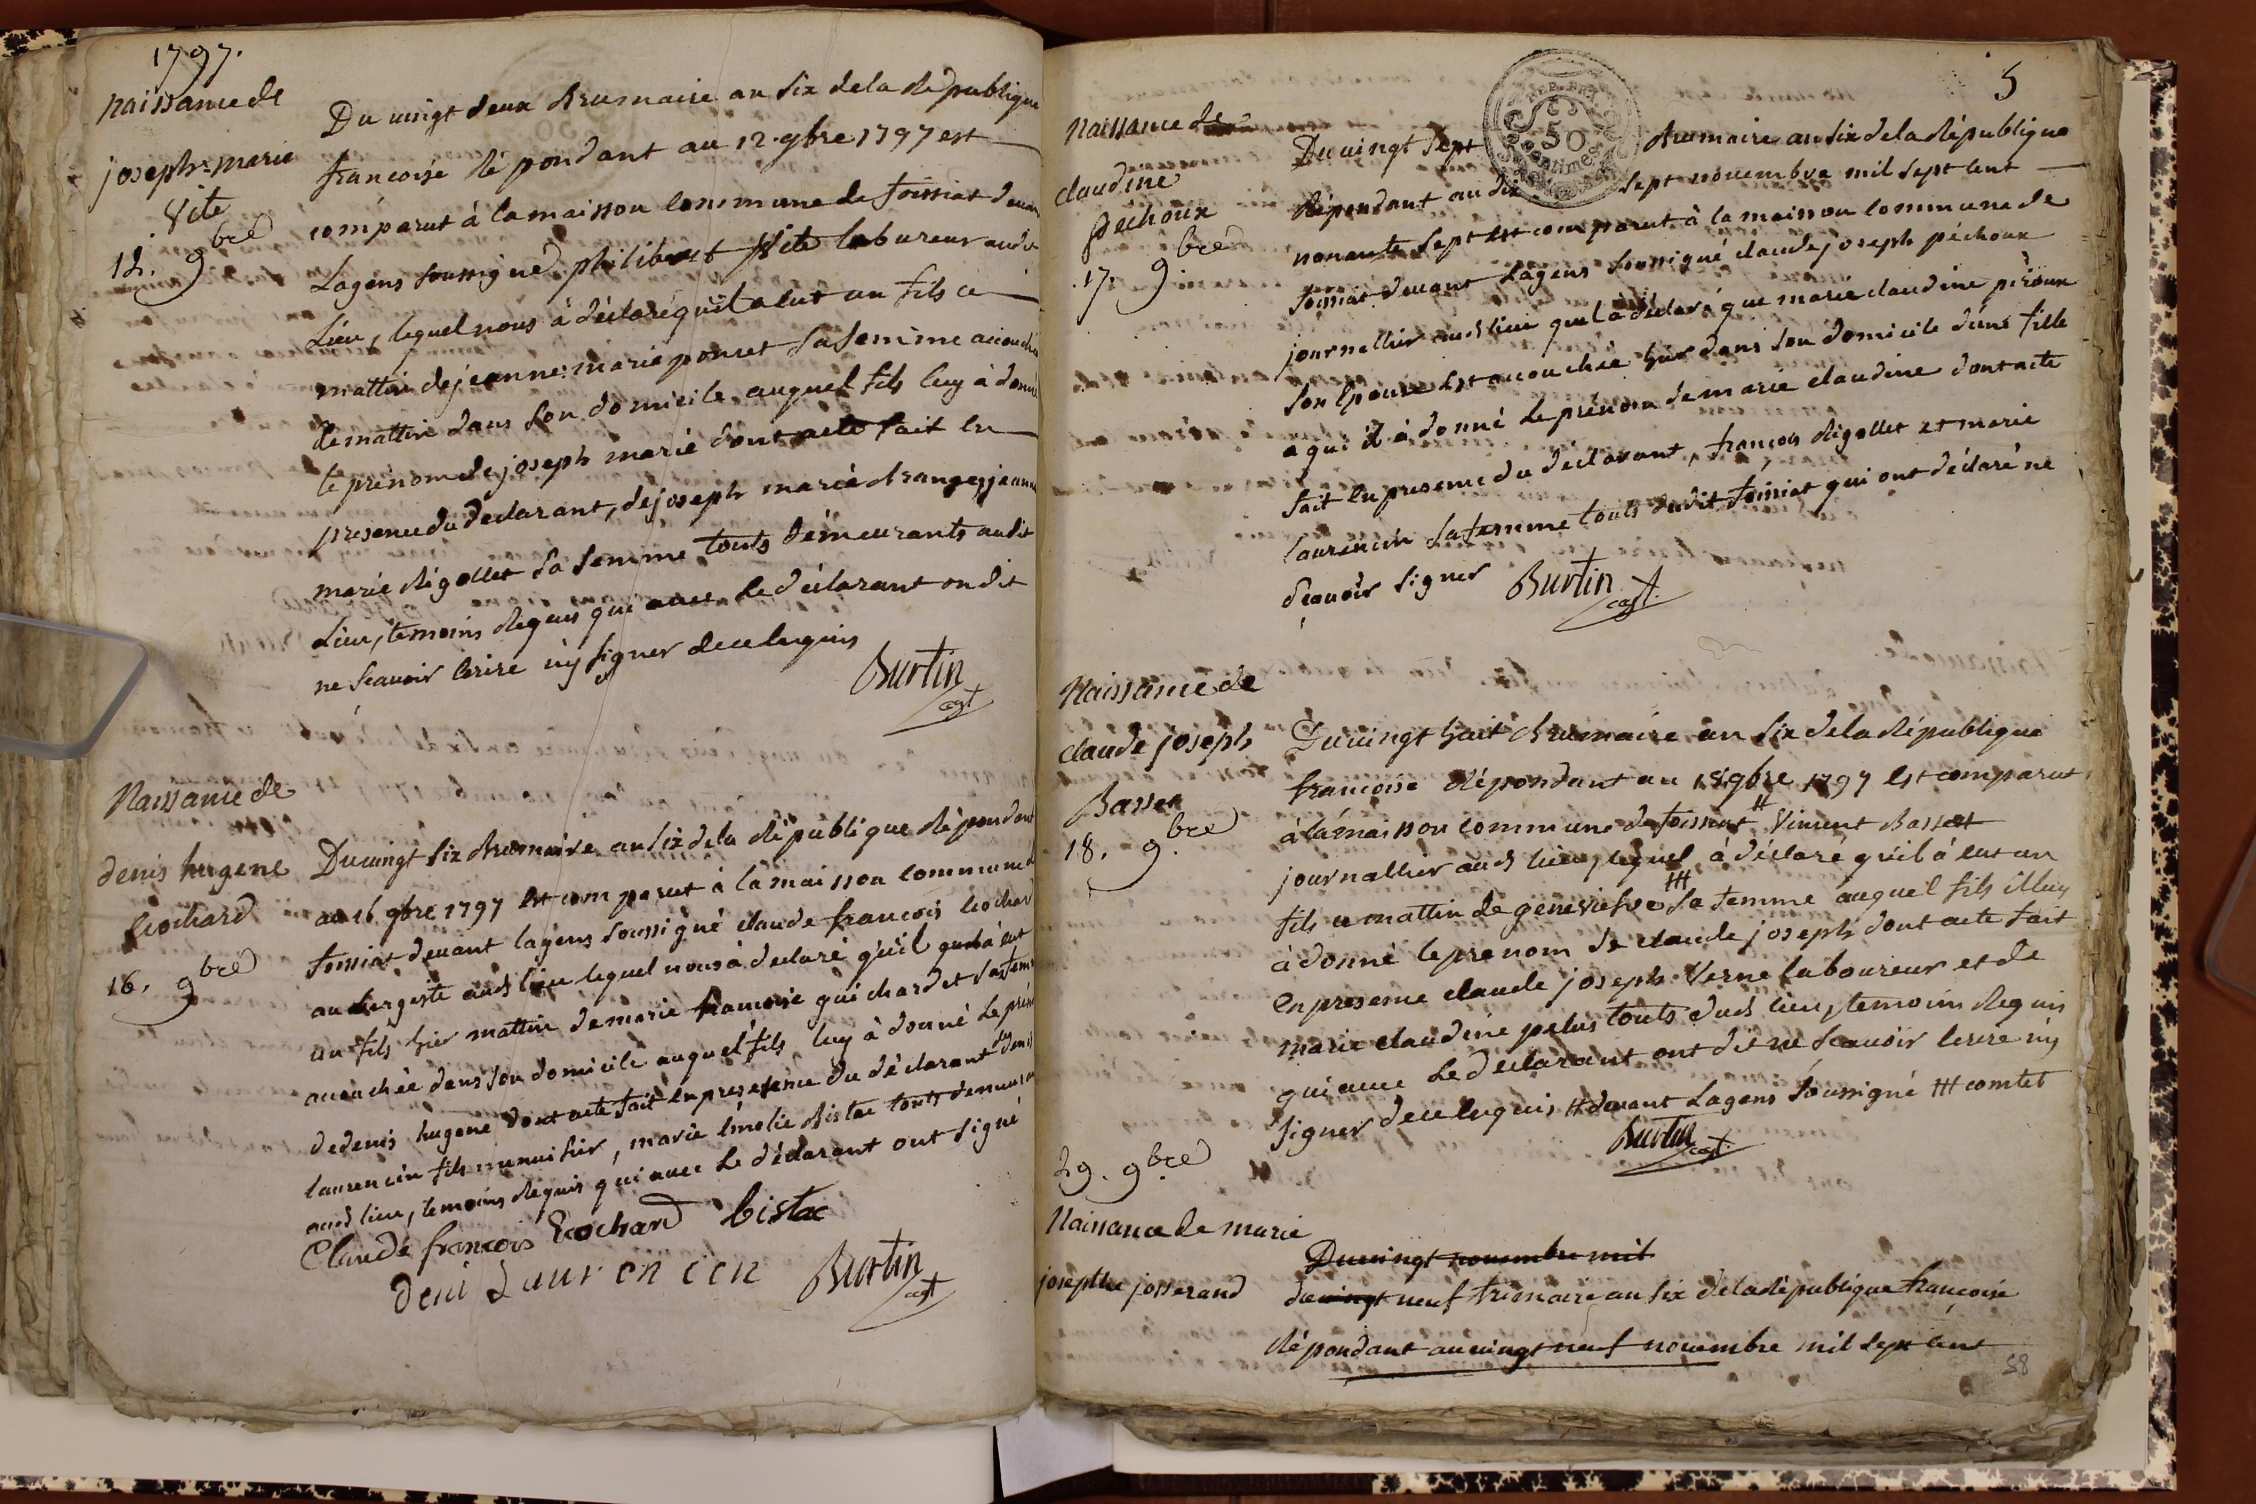 1797.
naissance de
joseph-marie
Vite
12. 9bre
Du vingt deux Brumaire an Six de la République
francoise Répondant au 12. 9bre 1797 est
comparut à la maisson Commune de foissiat devan
Lagens soussigné philibert Vite laboureur audit
Lieu, lequel nous à déclaré qu'il a eut un fils ce
mattin de jeanne: marie poncet Sa femme accouché
de mattin dans Son domicile auquel fils luy à donné
le prénom de joseph marie dont acte fait en
presence du declarant, de joseph marie drange, jeanne
marie Rigollet Sa femme touts démeurants audit
Lieu, temoins Requis qui avec Le déclarant on dit
ne Scavoir Ecrire ny Signer de ce Enquis
Burtin
agt
Naissance de
denis hugene
Ecochard
16. 9bre
Du vingt Six Brumaire an Six de la République Répondant
au 16 9bre 1797 Est comparut à la maisson commune de
foissiat devant lagens soussigné claude francois Ecochard
aubergiste aud lieu lequel nous à declaré qu'il à eut
un fils hier mattin de marie francoise guichardet Sa femme
accouchée dans Son domicile auquel fils luy à donné Le prén
de denis hugene dont acte fait En presesence du déclarant de denis
laurencin fils menuisier, marie Emelie Bistac touts demeurant
aud lieu, temoins Requis qui avec Le déclarant ont Signé
Claude francois Ecochard bistac
deni Laurencien Burtin
agt
5
REP. FRA.
50
centimes
Naissance de
claudine
Pechoux
17. 9bre
Du vingt Sept Brumaire an Six de la République
Répondant au dix Sept novembre mil Sept Cent
nonante Sept Est comparut à la maisson Commune de
foissiat devant Lagens Soussigné claude joseph péchoux
journallier aud lieu quel à déclaré que marie claudine piroux
Son Epouse Est accouchée hier dans Son domicile d'une fille
a qui il à donné Le prénom de marie claudine dont acte
fait En presence du declarant, francois Rigollet et marie
laurencin Sa femme touts dudit foissiat qui ont déclaré ne
Scavoir Signer Burtin
agt.
Naissance de
claude joseph
Basset
18. 9bre
Du vingt huit Brumaire an Six de la République
francoise Répondant au 18 9bre 1797 Est comparut
à la maisson commune de foissiat # Vincent Basset
journallier aud lieu, lequel à déclaré qu'il à eut un
fils ce mattin de genevieve ## Sa femme auquel fils il luy
à donné le prenom de claude joseph dont acte fait
En presence claude joseph Verne laboureur et de
marie claudine pelus touts dud lieu, temoins Requis
qui avec Le declarant ont dit ne Scavoir Ecrire ny
Signer de ce Enquis # devant Lagens Soussigné ## comtet
Burtin
agt.
29. 9bre
Naissance de marie
josephte josserand
Du vingt novembre mil
du vingt neuf frimaire an Six de la République francoise
Répondant au vingt neuf novembre mil Sept Cent
58